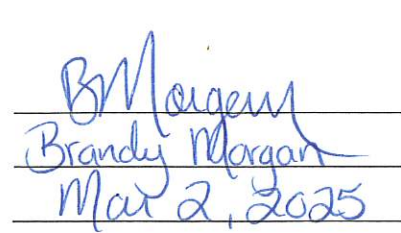 BMorgan
Brandy Morgan
Mar 2, 2025